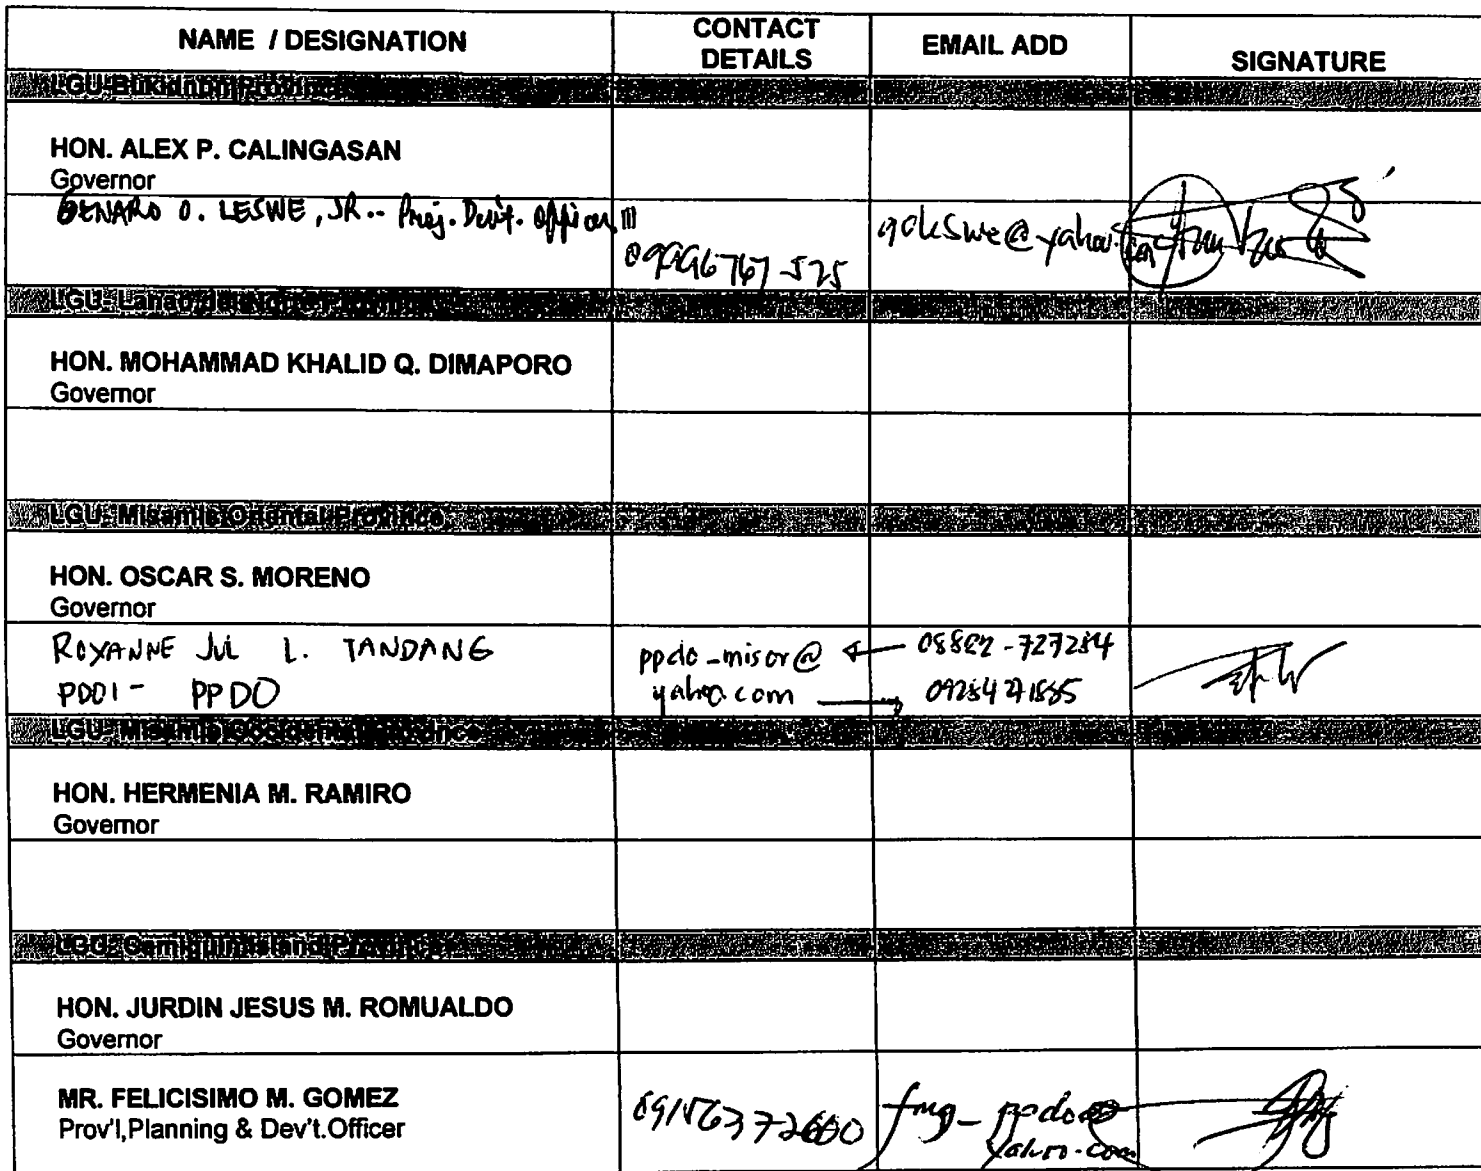 NAME / DESIGNATION
CONTACT
DETAILS
EMAIL ADD
SIGNATURE
LGU-Bukidnon Province
HON. ALEX P. CALINGASAN
Governor
GENARO O. LESWE, JR.. Proj. Devt. Officer III
LGU- Lanao del Norte Province
HON. MOHAMMAD KHALID Q. DIMAPORO
Governor
LGU- Misamis Oriental Province
HON. OSCAR S. MORENO
Governor
ROXANNE JUL L. TANDANG
PDO1- PPDO
ppdo_misor@
yahoo.com
LGU- Misamis Occidental Province
HON. HERMENIA M. RAMIRO
Governor
LGU- Camiguin Island Province
HON. JURDIN JESUS M. ROMUALDO
Governor
MR. FELICISIMO M. GOMEZ
Prov'l,Planning & Dev't.Officer
fmg_ppdo@
yahoo.com